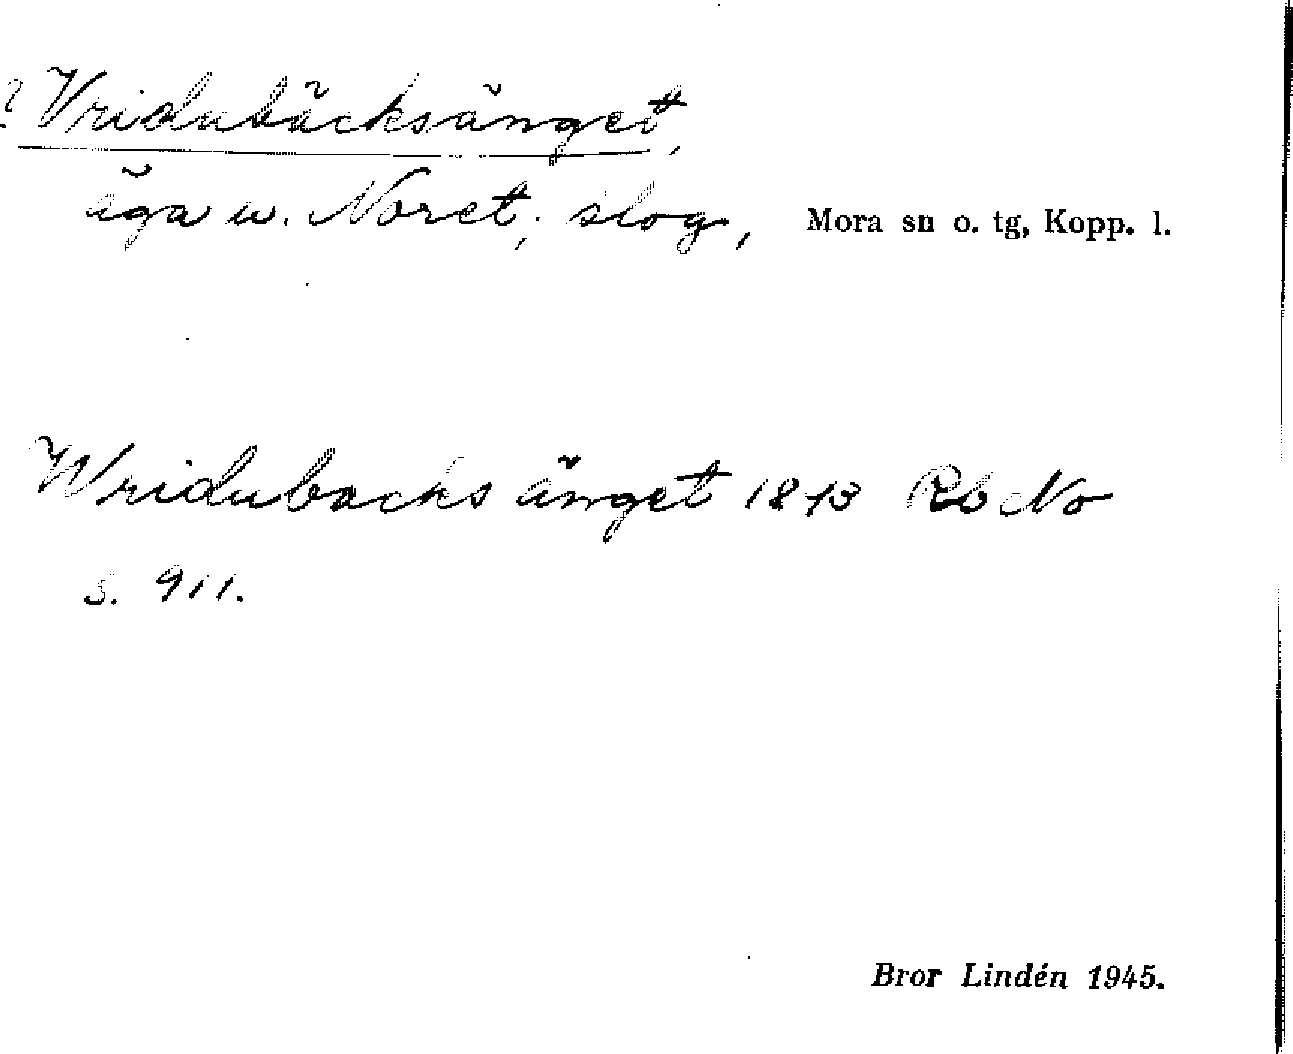 ? Vridubäcksänget,
äga u. Noret; slog, Mora sn o. tg, Kopp. l.
Wridubacks änget 1843 Rb No
s. 911.
Bror Lindén 1945.